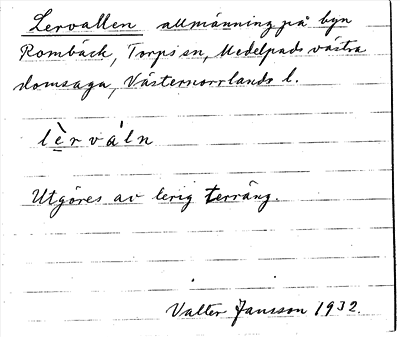 Lervallen allmänning på byn
Rombäck, Torps sn, Medelpads västra
domsaga, Västernorrlands l.
lèrváln
Utgöres av lerig terräng.
Valter Jansson 1932.